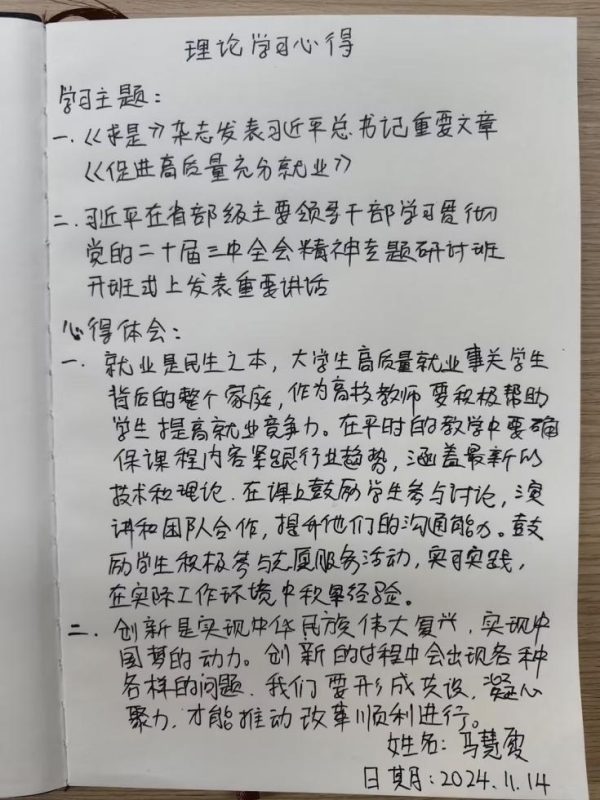 理论学习心得
学习主题：
一.《求是》杂志发表习近平总书记重要文章
《促进高质量充分就业》
二.习近平在省部级主要领导干部学习贯彻
党的二十届三中全会精神专题研讨班
开班式上发表重要讲话
心得体会：
一.就业是民生之本，大学生高质量就业事关学生
背后的整个家庭，作为高校教师要积极帮助
学生提高就业竞争力。在平时的教学中要确
保课程内容紧跟行业趋势，涵盖最新的
技术和理论.在课上鼓励学生参与讨论，演
讲和团队合作，提升他们的沟通能力。鼓
励学生积极参与志愿服务活动，实习实践，
在实际工作环境中积累经验。
二.创新是实现中华民族伟大复兴，实现中
国梦的动力。创新的过程中会出现各种
各样的问题.我们要形成共识，凝心
聚力.才能推动改革顺利进行。
姓名：马慧霞
日期：2024.11.14